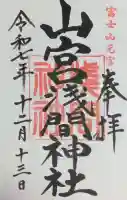 奉拝
富士山元宮
山宮浅間神社
令和七年十二月十三日